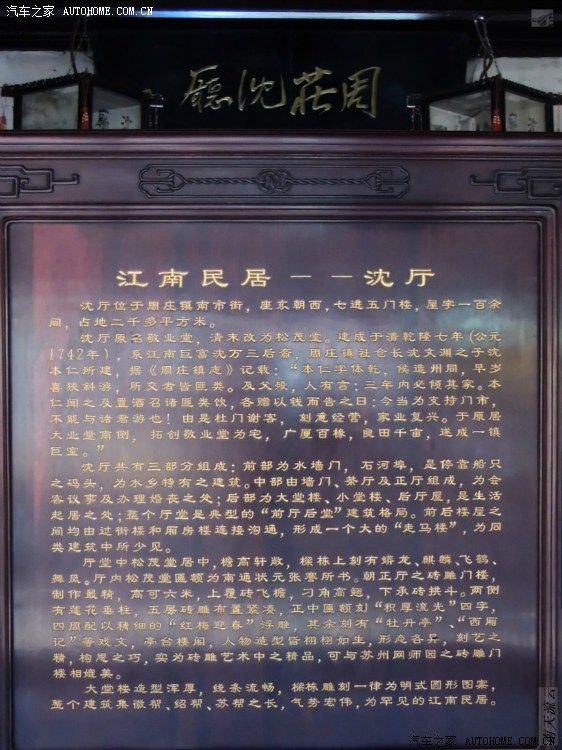 汽车之家 AUTOHOME.COM.CN
周莊沈廳
江南民居——沈厅
沈厅位于周庄镇南市街，座东朝西，七进五门楼，屋宇一百余
间，占地二千多平方米。
沈厅原名敬业堂，清末改为松茂堂。建成于清乾隆七年(公元
1742年)，系江南巨富沈万三后裔、周庄镇社仓长沈文渊之子沈
本仁所建，据《周庄镇志》记载："本仁字体乾，候选州同，早岁
喜狭斜游，所交者皆匪类。及父殁，人有言：三年内必倾其家。本
仁闻之及置酒召诸匪类饮，各赠以钱而告之曰：今当为支持门市，
不能与诸君游也！由是杜门谢客，刻意经营，家业复兴。于原居
大业堂南侧，拓创敬业堂为宅，广厦百椽，良田千亩，遂成一镇
巨室。"
沈厅共有三部分组成：前部为水墙门，石河埠，是停靠船只
之码头，为水乡特有之建筑。中部由墙门、茶厅及正厅组成，为会
客议事及办理婚丧之处；后部为大堂楼、小堂楼、后厅屋，是生活
起居之处；整个厅堂是典型的"前厅后堂"建筑格局。前后楼屋之
间均由过街楼和厢房楼连接沟通，形成一个大的"走马楼"，为同
类建筑中所少见。
厅堂中松茂堂居中，檐高轩敞，樑栋上刻有蟒龙、麒麟、飞鹤、
舞凤。厅内松茂堂匾额为南通状元张謇所书。朝正厅之砖雕门楼，
制作最精，高可六米，上覆砖飞檐，刁角高翘，下承砖拱斗。两侧
有莲花垂柱，五层砖雕布置紧凑，正中匾额刻"积厚流光"四字，
四周配以精细的"红梅迎春"浮雕，其余刻有"牡丹亭"、"西厢
记"等戏文，亭台楼阁，人物造型皆栩栩如生，形态各异，刻艺之
精，构思之巧，实为砖雕艺术中之精品，可与苏州网师园之砖雕门
楼相媲美。
大堂楼造型浑厚，线条流畅，樑栋雕刻一律为明式圆形图案，
整个建筑集徽帮、绍帮、苏帮之长，气势宏伟，为罕见的江南民居。
汽车之家 AUTOHOME.COM.CN